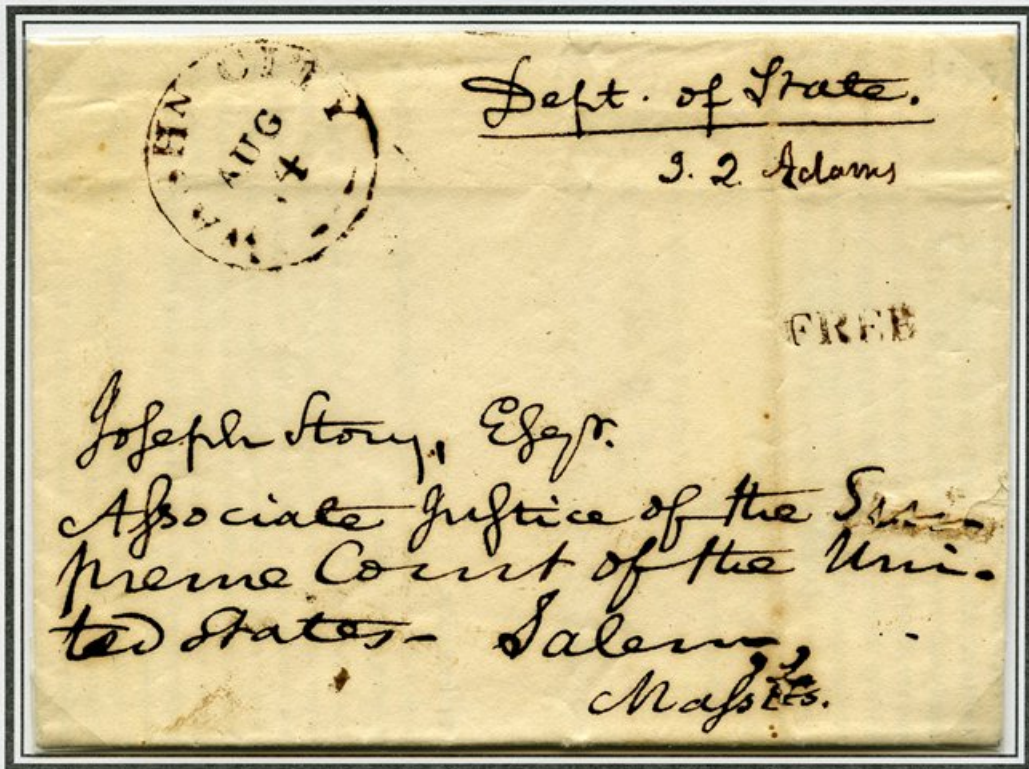 WASHN CITY
AUG
4
Dept. of State.
J. Q. Adams
FREE
Joseph Story, Esqr.
Associate Justice of the Su-
preme Court of the Uni-
ted States - Salem
Massts.